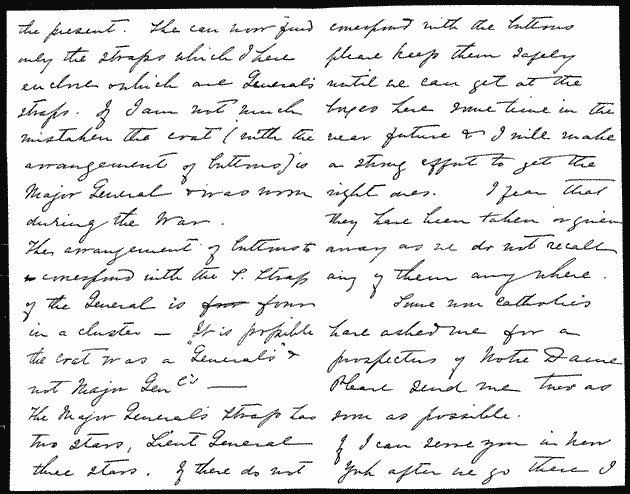 the present. She can now find
only the straps which I here
enclose & which are General's
straps. If I am not much
mistaken the coat (with the
arrangement of buttons) is
Major General & was worn
during the War.
The arrangement of buttons to
correspond with the S. Strap
of the General is four
in a cluster — "It is possible
the coat was a "Generals" &
not Major Genl's —
The Major Generals Strap has
two stars, Lieut General
three stars. If these do not
correspond with the buttons
please keep them safely
until we can get at the
boxes here some time in the
near future & I will make
a strong effort to get the
right ones. I fear that
they have been taken or given
away as we do not recall
any of them anywhere.
Some non Catholics
have asked me for a
prospectus of Notre Dame
Please send me two as
soon as possible.
If I can serve you in New
York after we go there I